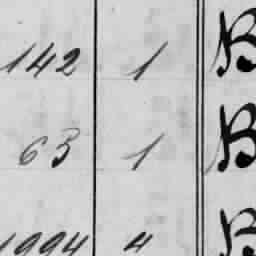 142 1 B
63 1 B
1994 4 B